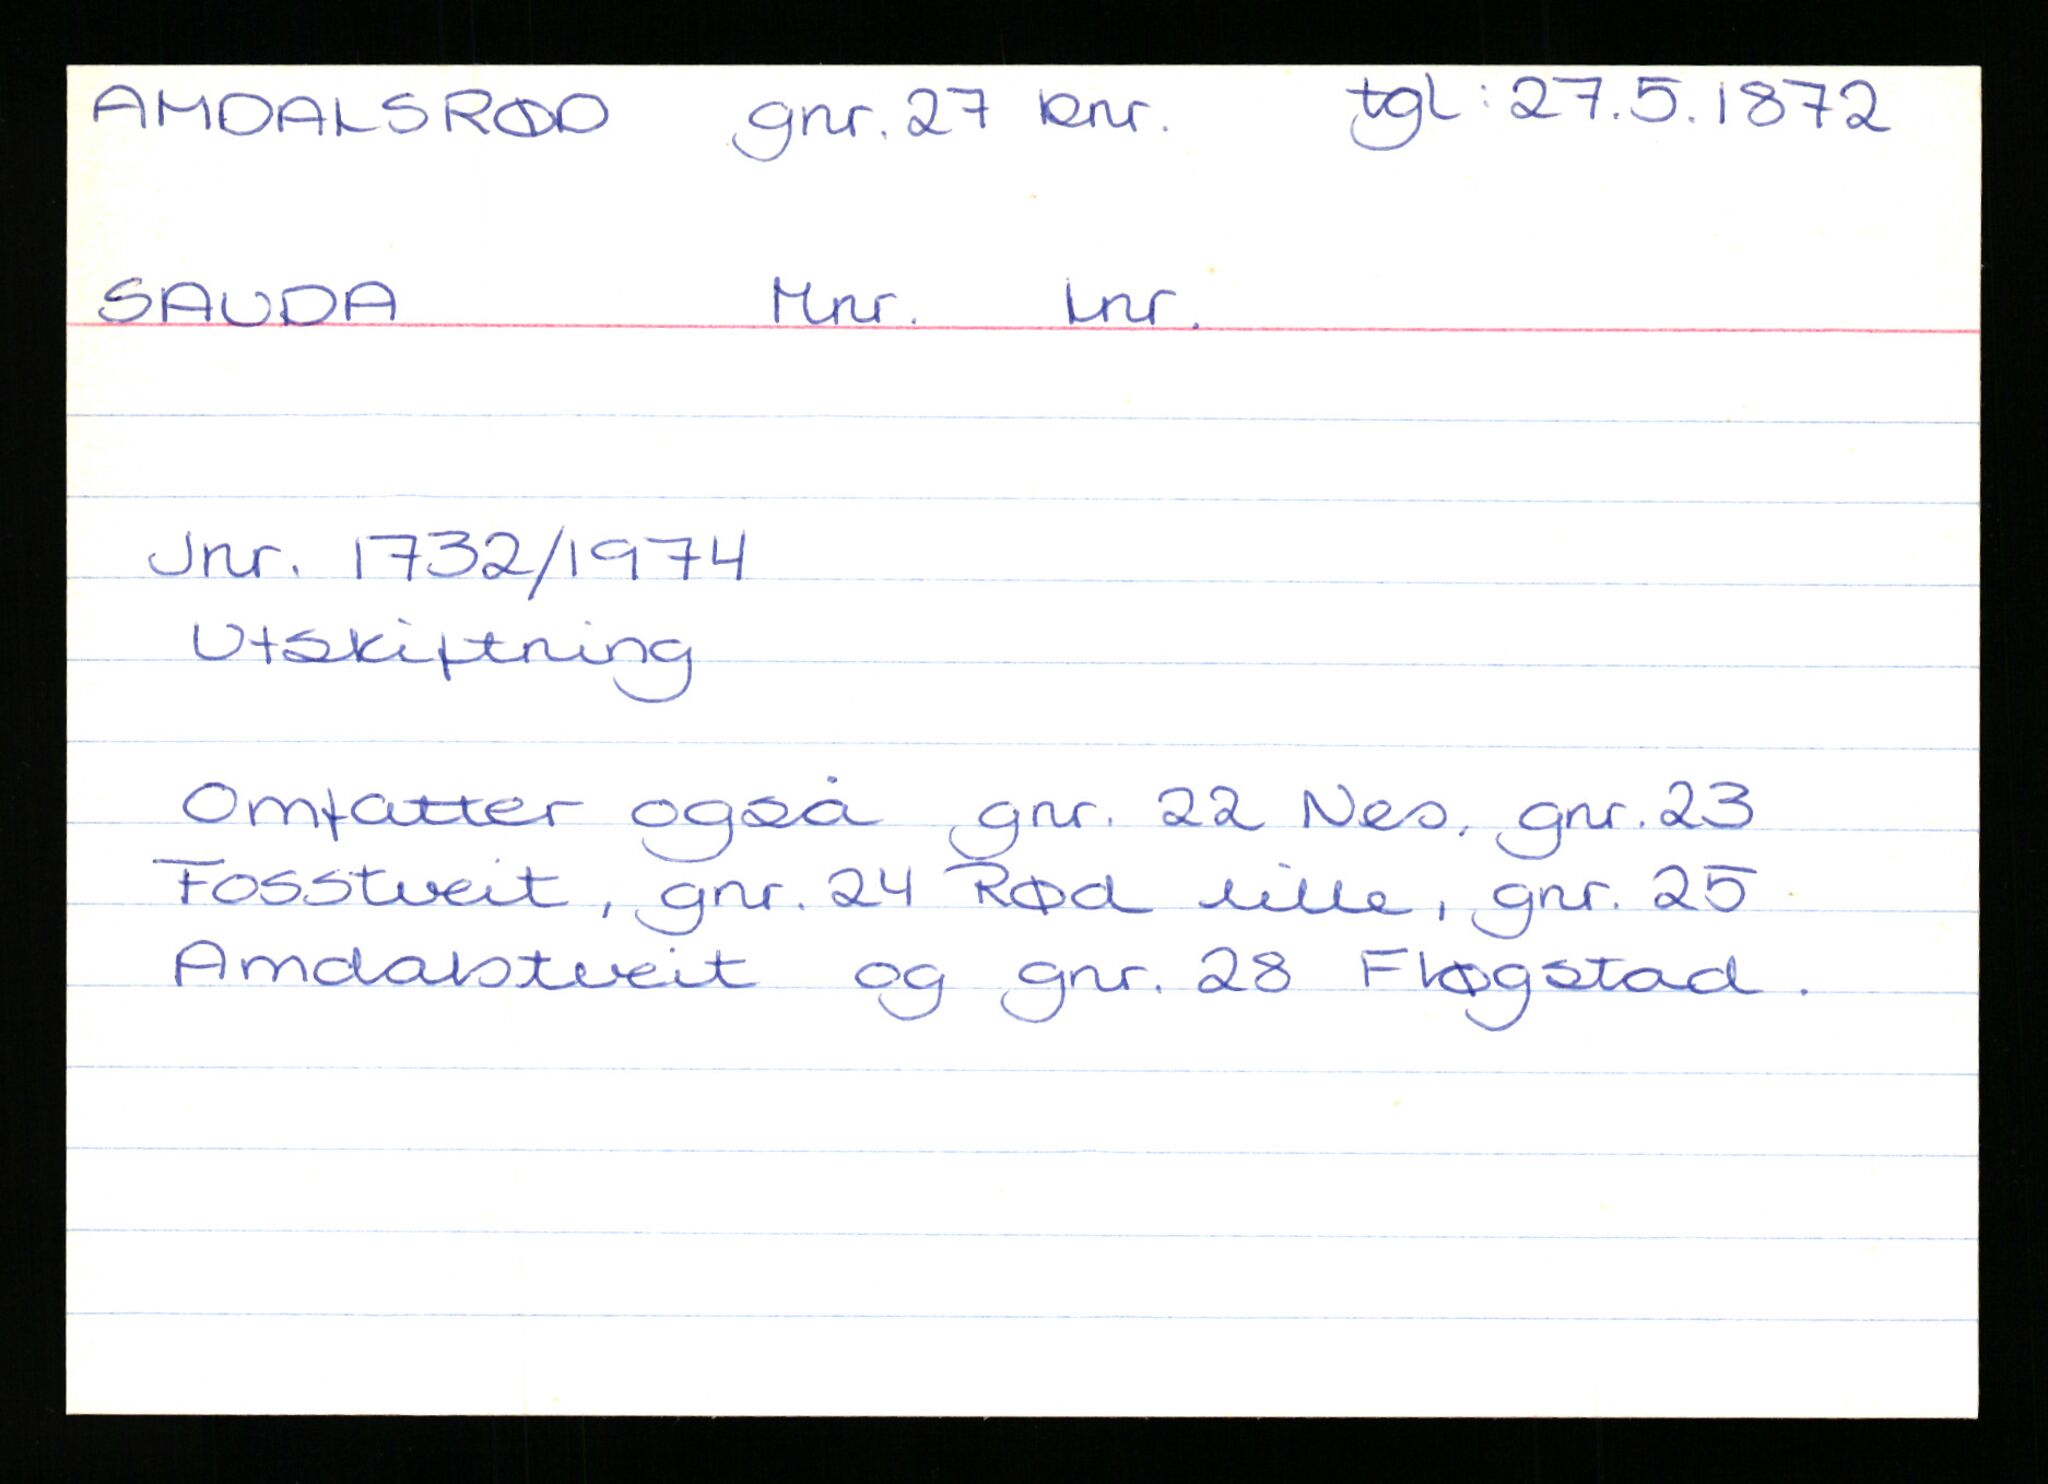 AMDALSRØD gnr. 27 bnr. tgl: 27.5.1872
SAUDA Mnr. Lnr.
Jnr. 1732/1974
Utskiftning
Omfatter også gnr. 22 Nes, gnr. 23
Fosstveit, gnr. 24 Rød lille, gnr. 25
Amdalstveit og gnr. 28 Fløgstad.